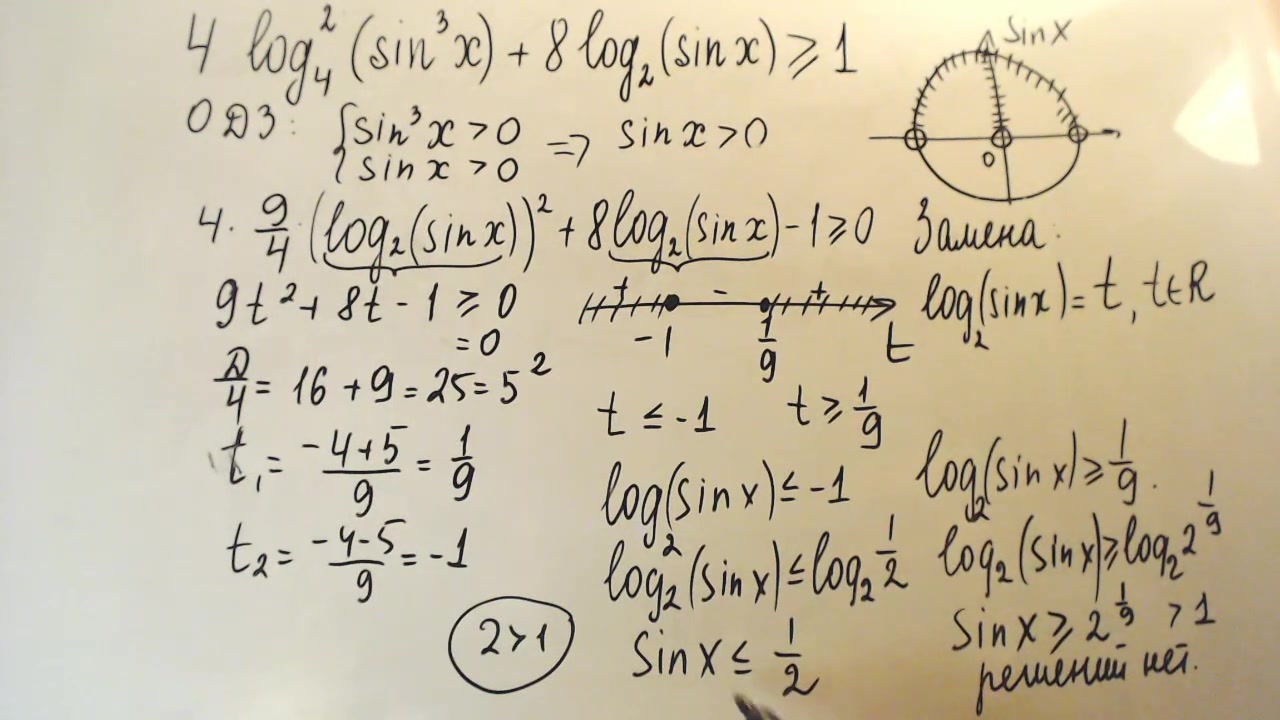 4 log₄² (sin³x) + 8 log₂ (sin x) ⩾ 1
sin x
ОДЗ: { sin³x > 0
sin x > 0
⇒ sin x > 0
0
4 · 9/4 (log₂(sin x))² + 8 log₂(sin x) - 1 ⩾ 0
Замена:
log₂(sin x) = t, t∈R
9t² + 8t - 1 ⩾ 0
= 0
+ - +
-1 1/9 t
D/4 = 16 + 9 = 25 = 5²
t₁ = (-4+5)/9 = 1/9
t₂ = (-4-5)/9 = -1
t ≤ -1 t ⩾ 1/9
log₂(sin x) ≤ -1
log₂(sin x) ≤ log₂ 1/2
sin x ≤ 1/2
2 > 1
log₂(sin x) ⩾ 1/9.
log₂(sin x) ⩾ log₂ 2^(1/9)
sin x ⩾ 2^(1/9) > 1
решений нет.